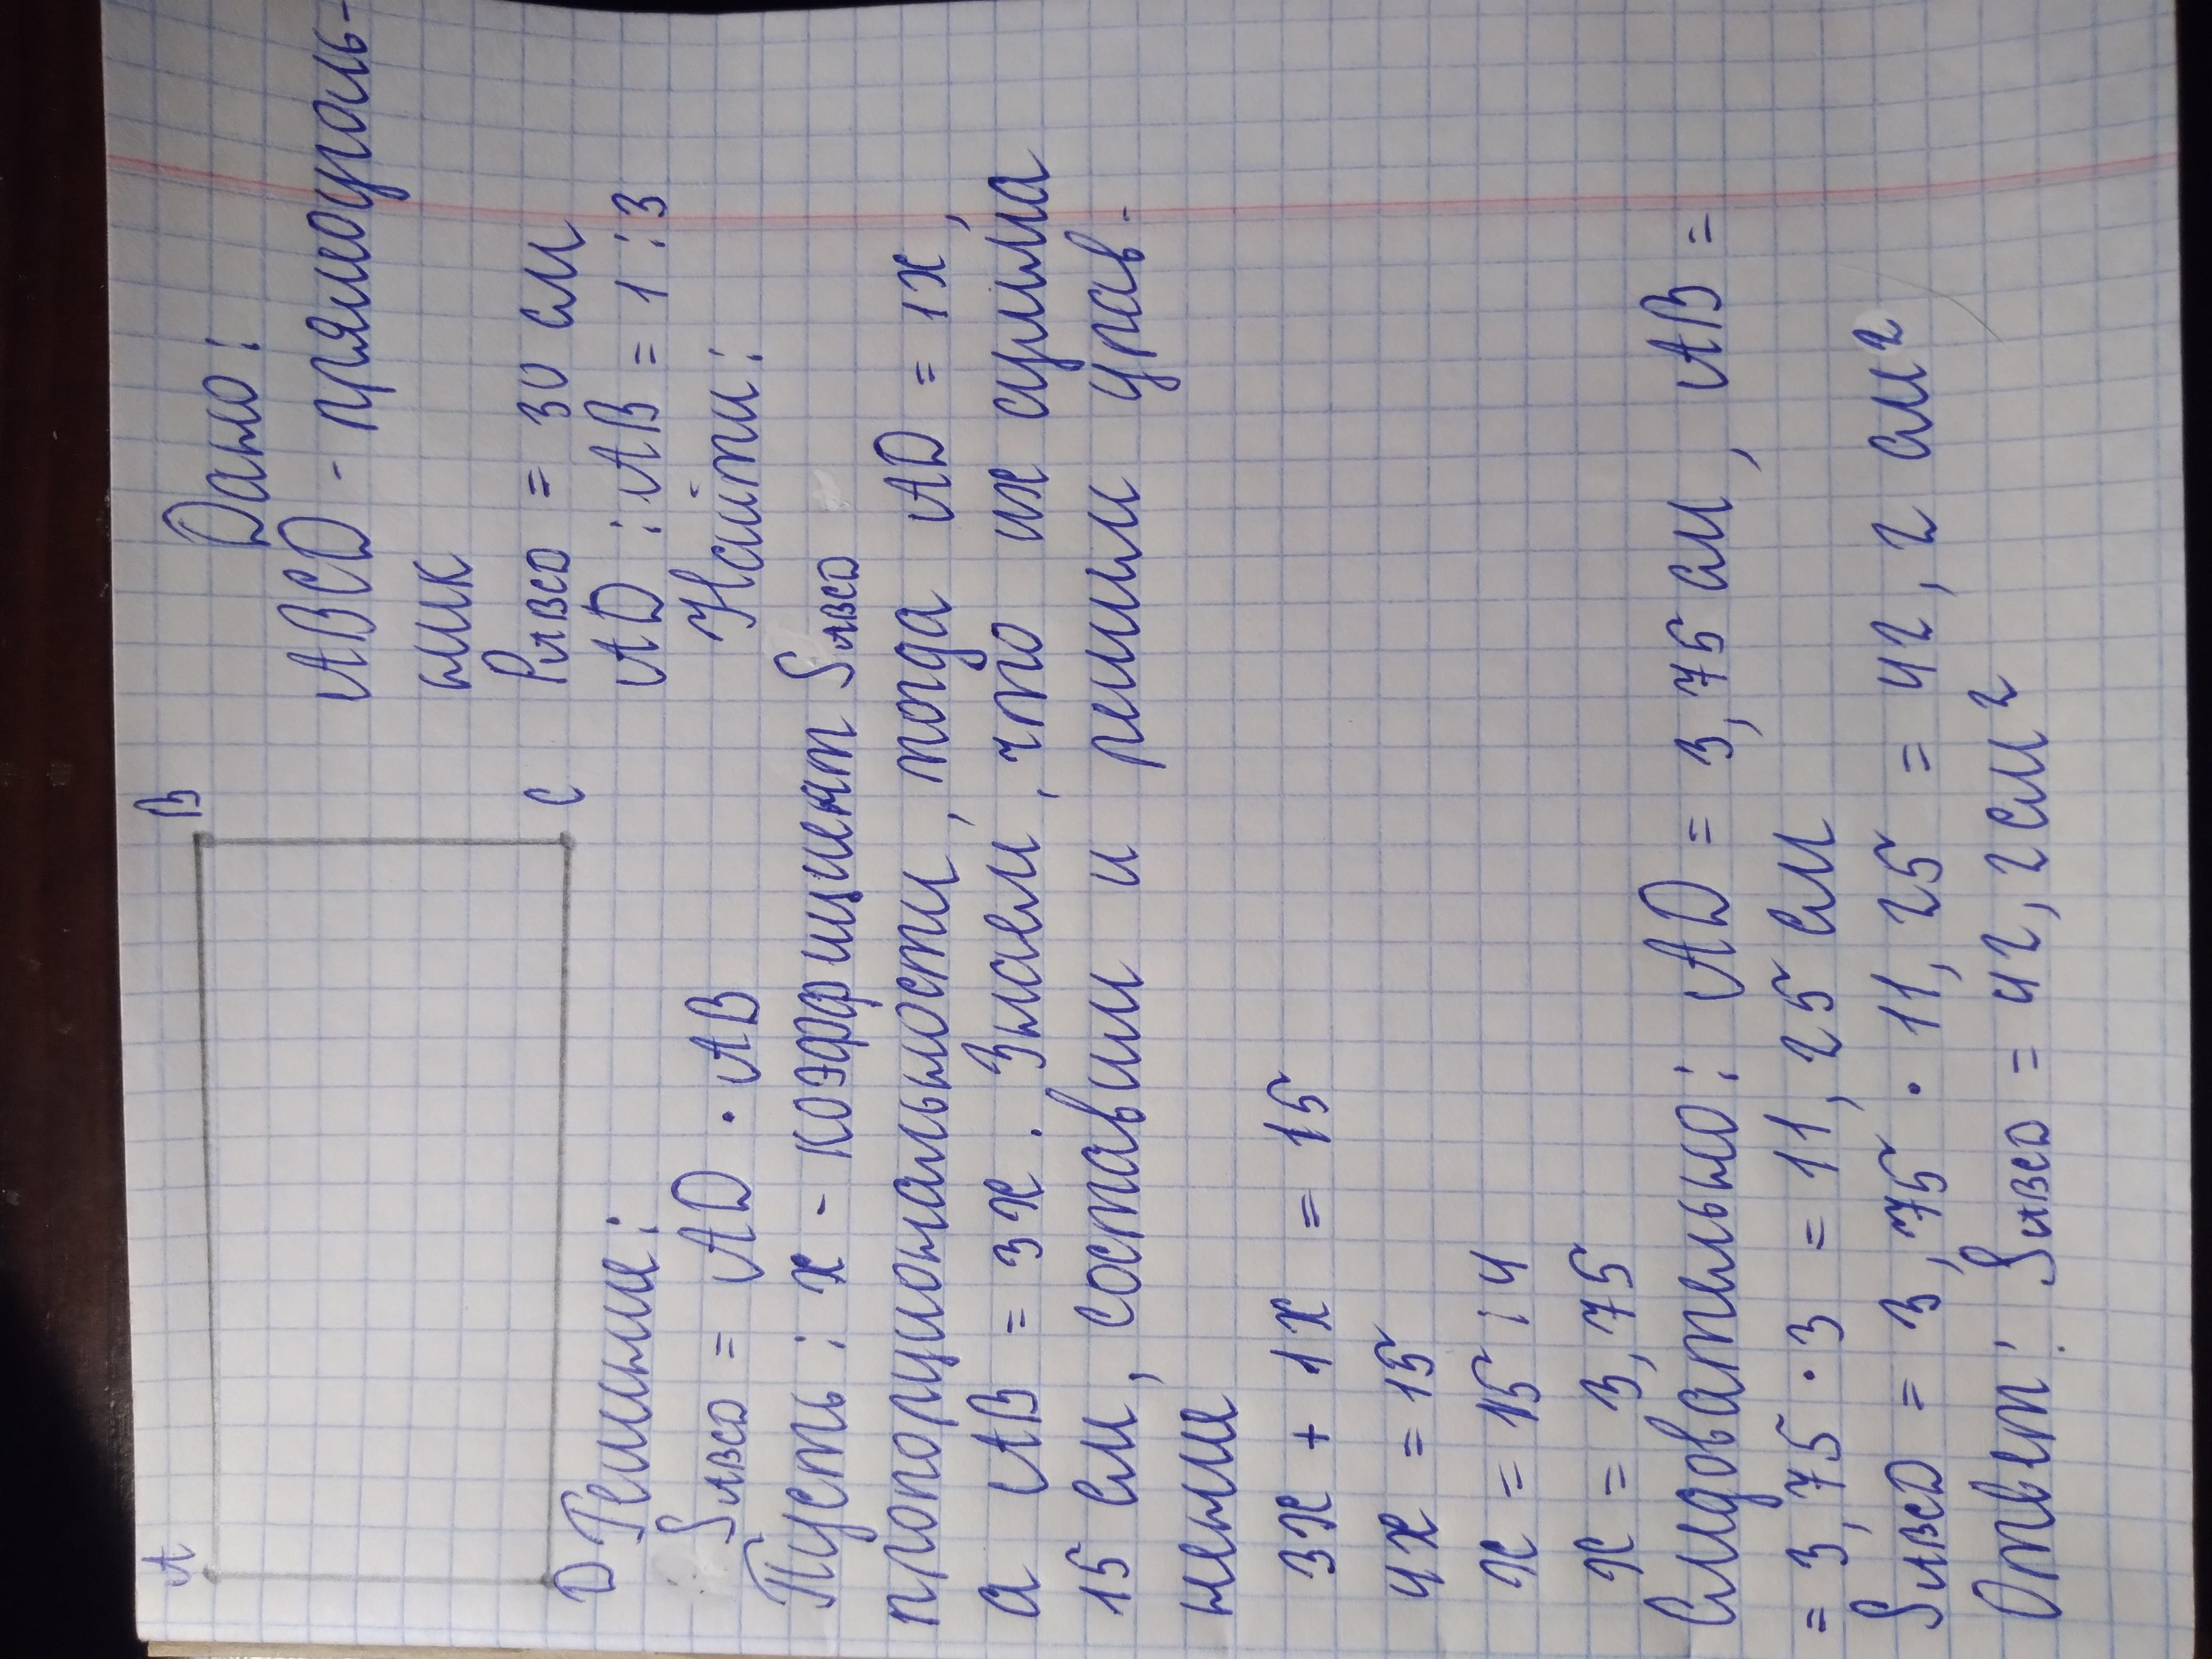 A
B
D
C
Дано:
ABCD - прямоуголь-
ник
PABCD = 30 см
AD : AB = 1 : 3
Найти:
SABCD
Решение:
SABCD = AD · AB
Пусть: x - коэффициент
пропорциональности, тогда AD = 1x,
а AB = 3x. Знаем, что их сумма
15 см, составим и решим урав-
нение
3x + 1x = 15
4x = 15
x = 15 : 4
x = 3,75
Следовательно: AD = 3,75 см, AB =
= 3,75 · 3 = 11,25 см
SABCD = 3,75 · 11,25 = 42,2 см²
Ответ: SABCD = 42,2 см²